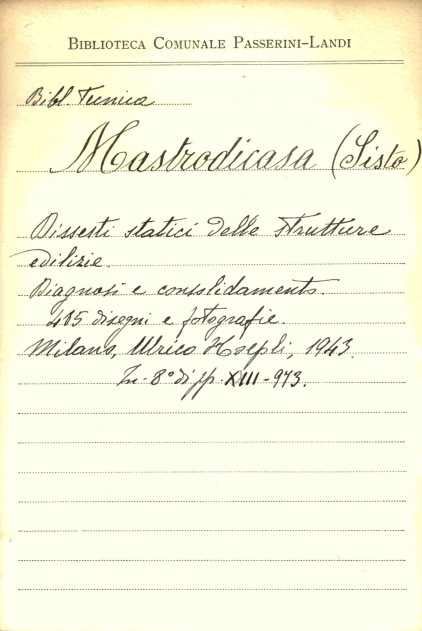 BIBLIOTECA COMUNALE PASSERINI-LANDI
Bibl. Tecnica
Mastrodicasa (Sisto)
Dissesti statici delle strutture
edilizie.
Diagnosi e consolidamento.
405 disegni e fotografie.
Milano, Ulrico Hoepli, 1943.
In-8° di pp. XIII-973.